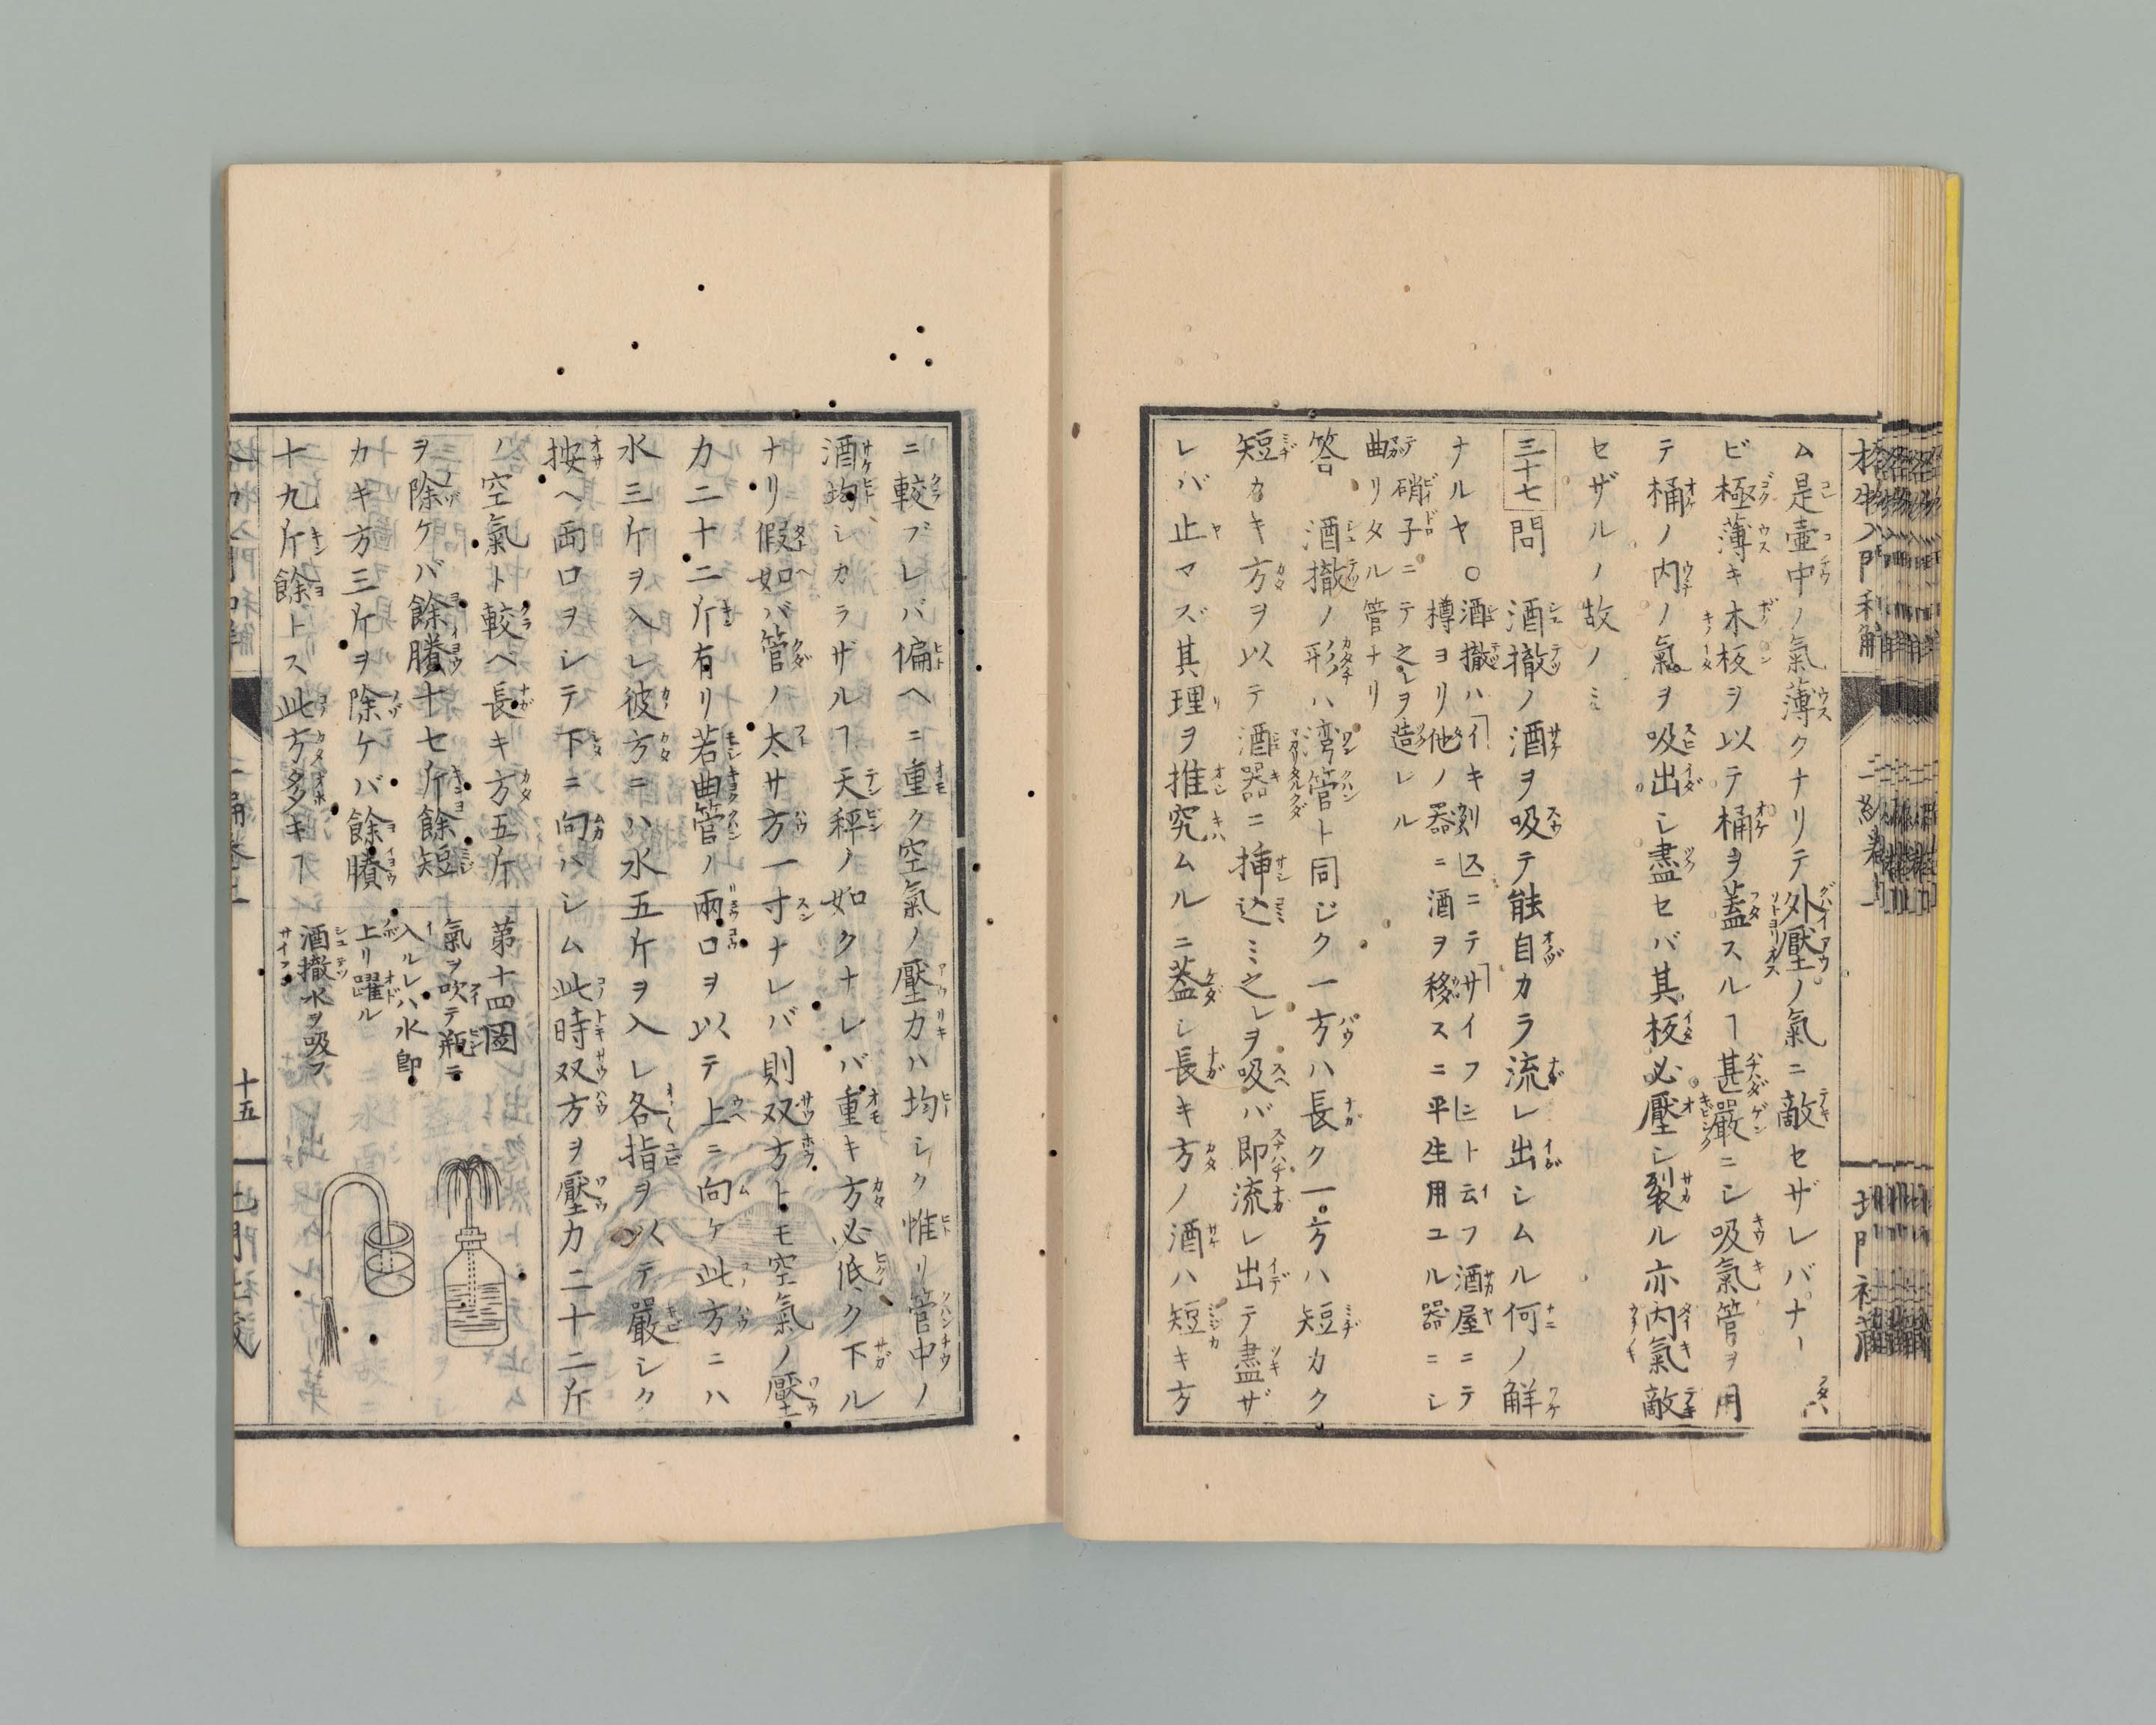 格物入門和解
ム是壷中ノ氣薄クナリテ外壓ノ氣ニ敵セザレバナー
ビ極薄キ木板ヲ以テ桶ヲ蓋スルヿ甚嚴ニシ吸氣管ヲ用
テ桶ノ内ノ氣ヲ吸出シ盡セバ其板必壓シ裂ル亦内氣敵
セザルノ故ノミ
三十七問 酒撤ノ酒ヲ吸テ能自カラ流レ出シムル何ノ解
ナルヤ○酒撤ハ「イキ劄ス」ニテ「サイフヒ」ト云フ酒屋ニテ
樽ヨリ他ノ器ニ酒ヲ移スニ平生用ユル器ニシ
テ硝子ニテ之レヲ造レル
曲リタル管ナリ
答 酒撤ノ形ハ弯管ト同ジク一方ハ長ク一方ハ短カク
短カキ方ヲ以テ酒器ニ挿込ミ之レヲ吸バ即流レ出テ盡ザ
レバ止マズ其理ヲ推究ムルニ蓋シ長キ方ノ酒ハ短キ方
ニ較ブレバ偏ヘニ重ク空氣ノ壓力ハ均シク惟リ管中ノ
酒均シカラザルヿ天秤ノ如クナレバ重キ方必低ク下ル
ナリ假如バ管ノ太サ方一寸ナレバ則双方トモ空氣ノ壓
力二十二斤有リ若曲管ノ兩口ヲ以テ上ニ向ケ此方ニハ
水三斤ヲ入レ彼方ニハ水五斤ヲ入レ各指ヲ以テ嚴シク
按ヘ両口ヲシテ下ニ向ハシム此時双方ヲ壓力二十二斤
ノ空氣ト較ベ長キ方五斤
ヲ除ケバ餘賸十七斤餘短
カキ方三斤ヲ除ケバ餘賸
十九斤餘トス此方多キヿ
第十四圖
氣ヲ吹テ瓶ニ
入ルレハ水卽
上リ躍ル
酒撤水ヲ吸フ
十五